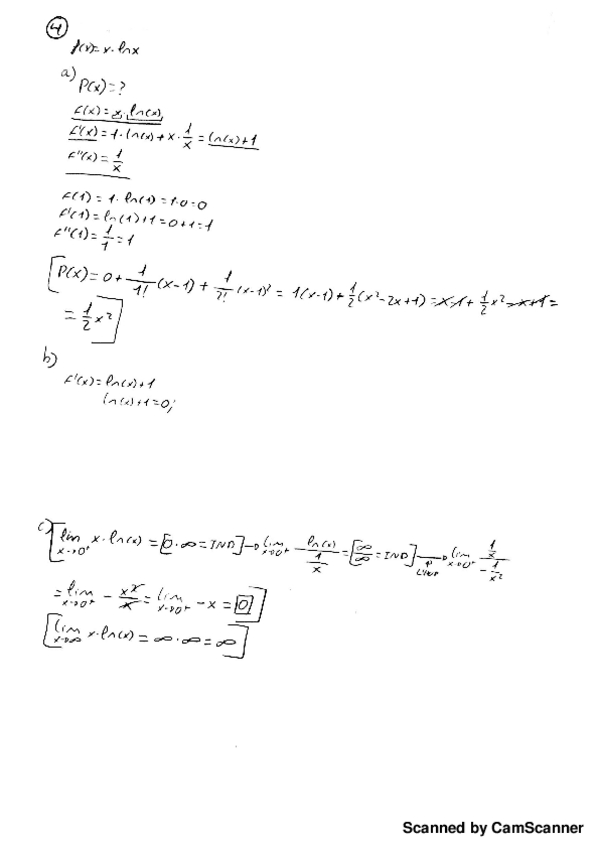 4
f(x)=x·lnx
a) P(x)=?
f(x)=x·ln(x)
f'(x)=1·ln(x)+x·1/x=ln(x)+1
f''(x)=1/x
f(1)=1·ln(1)=1·0=0
f'(1)=ln(1)+1=0+1=1
f''(1)=1/1=1
[P(x)=0+1/1!(x-1)+1/2!(x-1)²=1(x-1)+1/2(x²-2x+1)=x-1+1/2x²-x+1=
=1/2x²]
b)
f'(x)=ln(x)+1
ln(x)+1=0;
c) [lim x→0⁺ x·ln(x)=[0·∞=IND]→lim x→0⁺ ln(x)/(1/x)=[∞/∞=IND]→ L'HOP lim x→0⁺ (1/x)/(-1/x²)
=lim x→0⁺ -x²/x=lim x→0⁺ -x=0]
[lim x→∞ x·ln(x)=∞·∞=∞]
Scanned by CamScanner